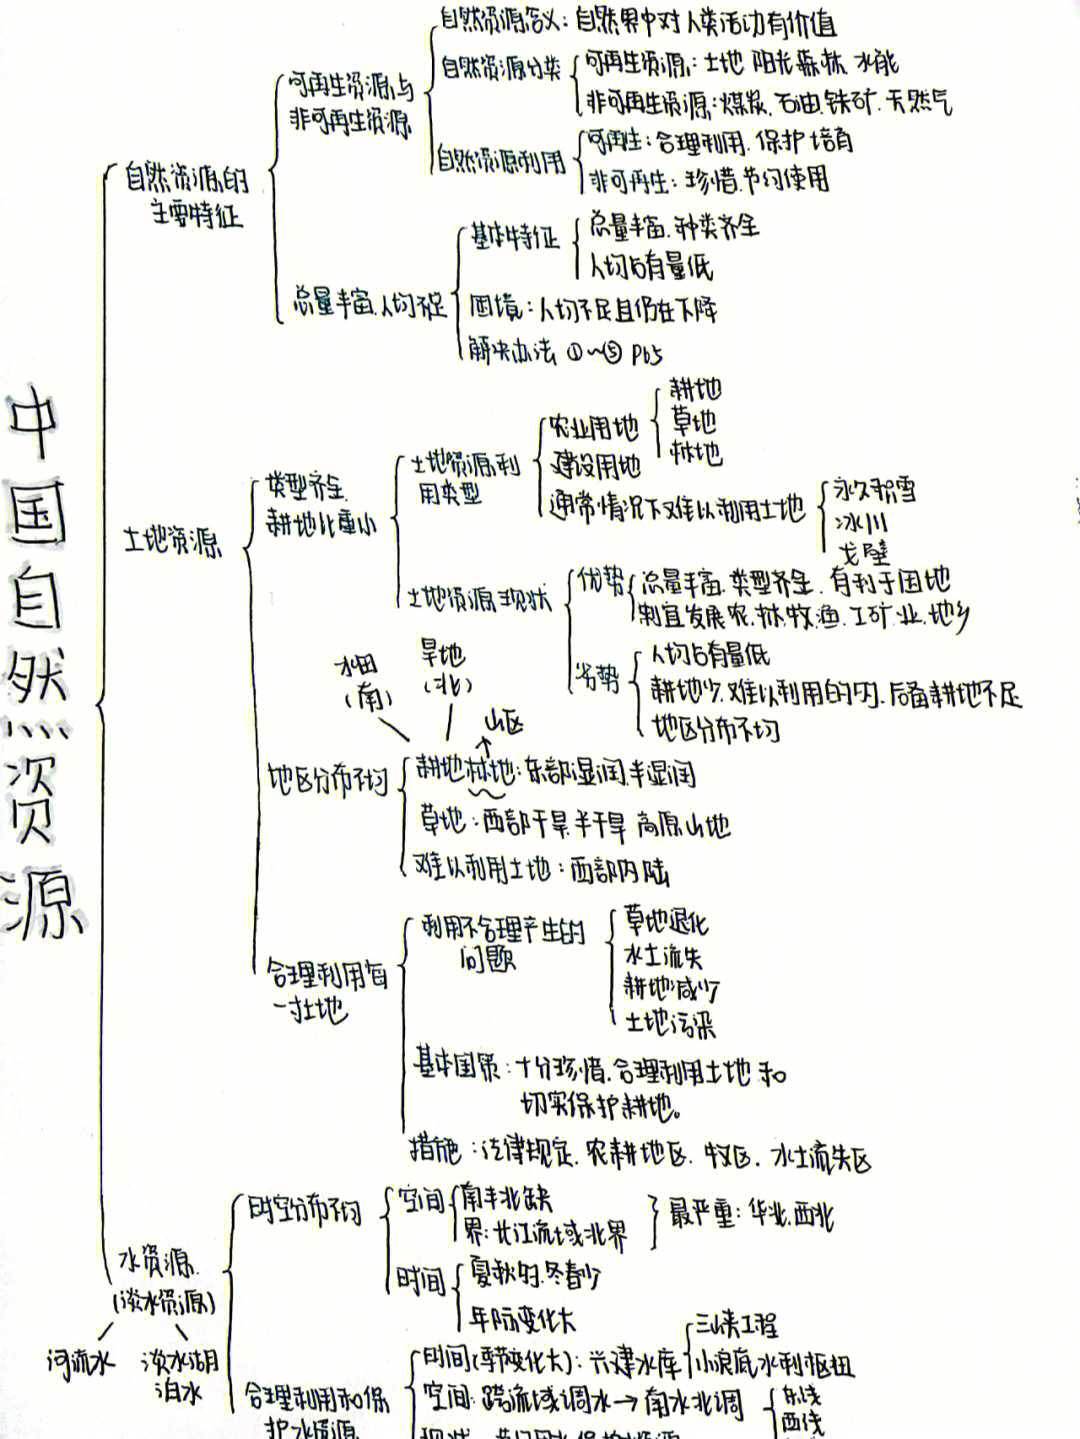 中国自然资源
自然资源的
主要特征
可再生资源与
非可再生资源
自然资源含义：自然界中对人类活动有价值
自然资源分类
可再生资源：土地 阳光 森林 水能
非可再生资源：煤炭.石油.铁矿.天然气
自然资源利用
可再生：合理利用.保护培育
非可再生：珍惜.节约使用
总量丰富.人均不足
基本特征
总量丰富.种类齐全
人均占有量低
困境：人均不足且仍在下降
解决办法 ①~⑤ P65
土地资源
类型齐全.
耕地比重小
土地资源利
用类型
农业用地
耕地
草地
林地
建设用地
通常情况下难以利用土地
永久积雪
冰川
戈壁
土地资源现状
优势
总量丰富.类型齐全.有利于因地
制宜发展农.林.牧.渔.工矿.业.地乡
劣势
人均占有量低
耕地少.难以利用的多.后备耕地不足
地区分布不均
水田
(南)
旱地
(北)
山区
地区分布不均
耕地林地：东部湿润.半湿润
草地：西部干旱半干旱 高原山地
难以利用土地：西部内陆
合理利用每
一寸土地
利用不合理产生的
问题
草地退化
水土流失
耕地减少
土地污染
基本国策：十分珍惜.合理利用土地和
切实保护耕地。
措施：法律规定.农耕地区.牧区.水土流失区
水资源.
(淡水资源)
河流水
淡水湖
泊水
时空分布不均
空间
南丰北缺
界：长江流域北界
最严重：华北.西北
时间
夏秋多.冬春少
年际变化大
合理利用和保
护水资源
时间(季节变化大)：兴建水库
三峡工程
小浪底水利枢纽
空间：跨流域调水→南水北调
东线
西线